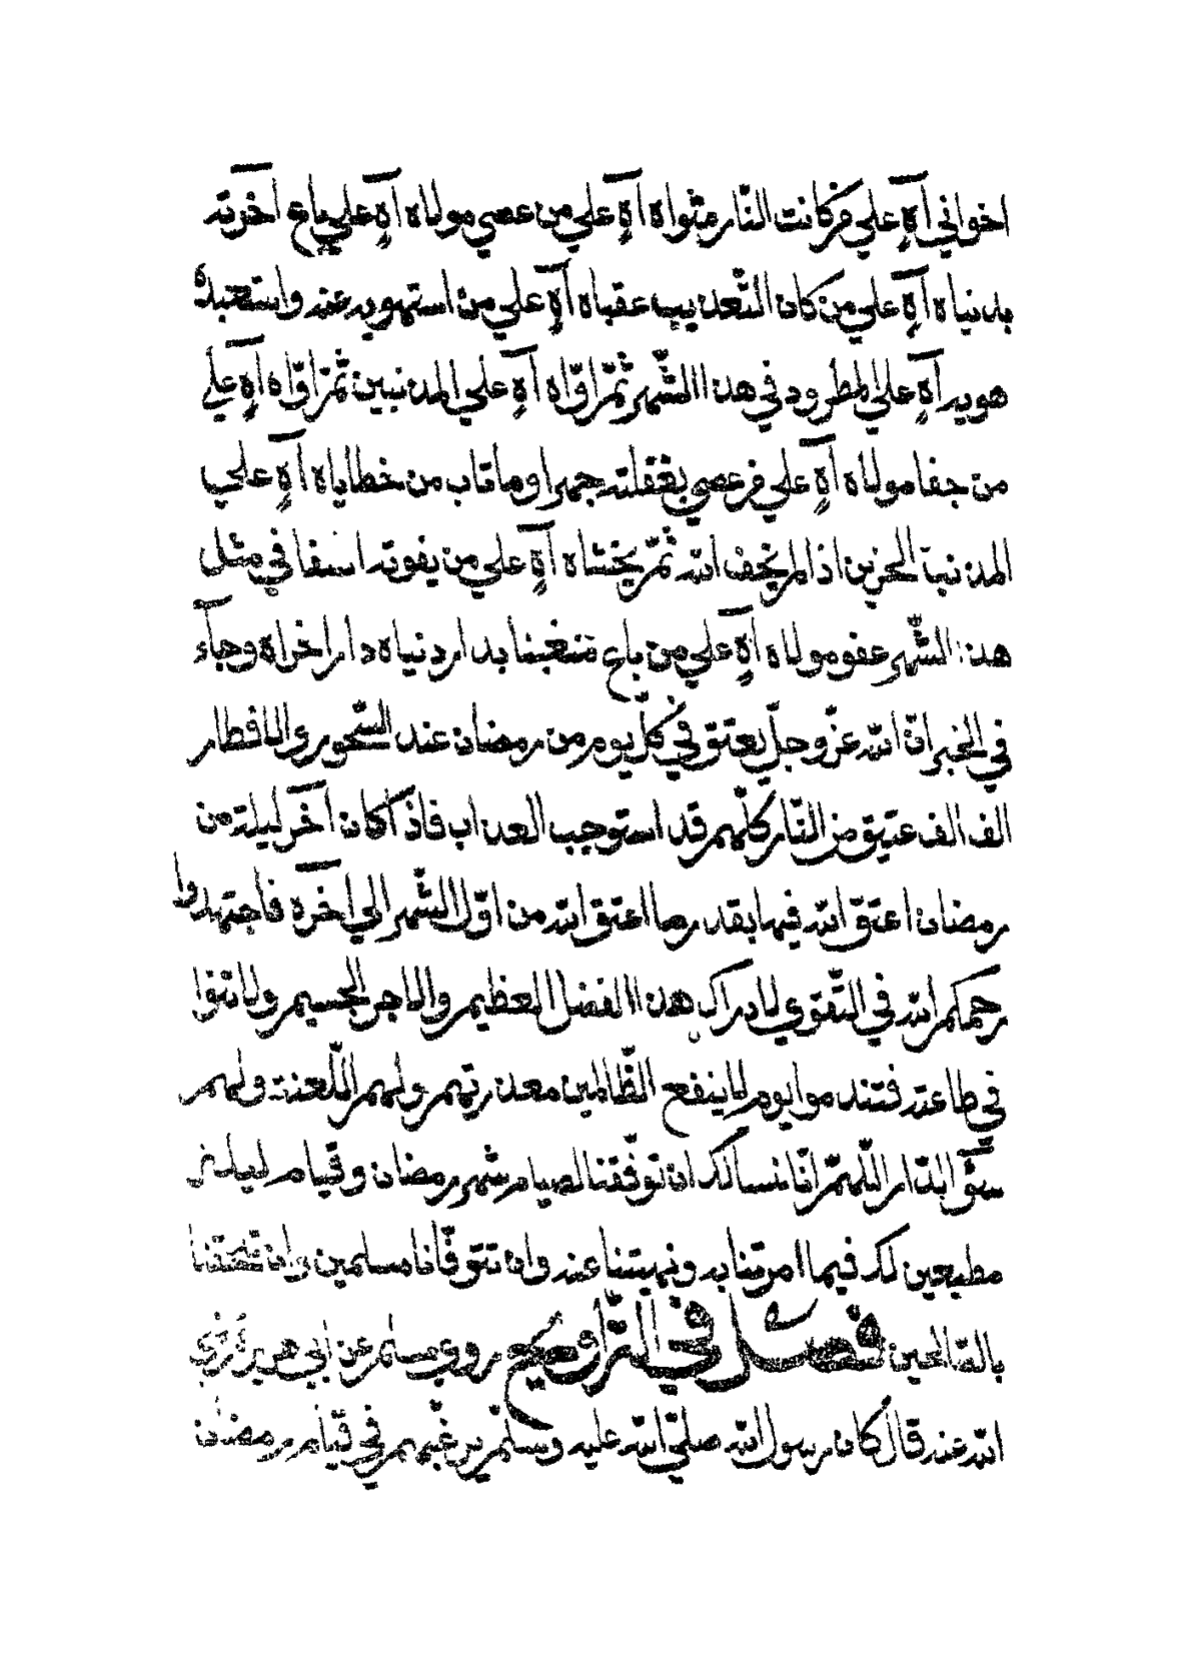 اخواني آه علي من كانت النّار مثواه آه علي من عصي مولاه آه علي باع آخرته
بدنياه آه علي من كان التّعذيب عقباه آه علي من استهويه عند واستعبده
هويه آه علي المطرود في هذا الشّهر ثمّ اوّاه آه علي المذنبين ثمّ اوّاه آه علي
من جفا مولاه آه علي من عصي بغفلته جهرا وما تاب من خطاياه آه علي
المذنب الحزين اذا لم يخف الله ثمّ يخشاه آه علي من يفوته اسفا في مثل
هذا الشّهر عفو مولاه آه علي من باع بدار دنياه دار اخراه وجآء
في الخبر انّ الله عزّ وجلّ يعتق في كلّ يوم من رمضان عند السّحور والافطار
الف الف عتيق من النّار كلّهم قد استوجب العذاب فاذا كان آخر ليلة من
رمضان اعتق الله فيها بقدر ما اعتق الله من اوّل الشّهر الي آخره فاجتهدوا
رحمكم الله في التّقوي لادراك هذا الفضل العظيم والاجر الجسيم ولا تنوا
في طاعته فتندموا يوم لا ينفع الظّالمين معذرتهم ولهم اللّعنة ولهم
سوٓء الدّار اللّهمّ انّا نسالك ان توفّقنا لصيام شهر رمضان وقيام لياليه
مطيعين لك فيما امرتنا به ونهيتنا عنه وان تتوفّانا مسلمين وان تلحقنا
بالصّالحين فصل في التّراويح روي مسلم عن ابي هريرة رضي
الله عنه قال كان رسول الله صلّي الله عليه وسلّم يرغّبهم في قيام رمضان